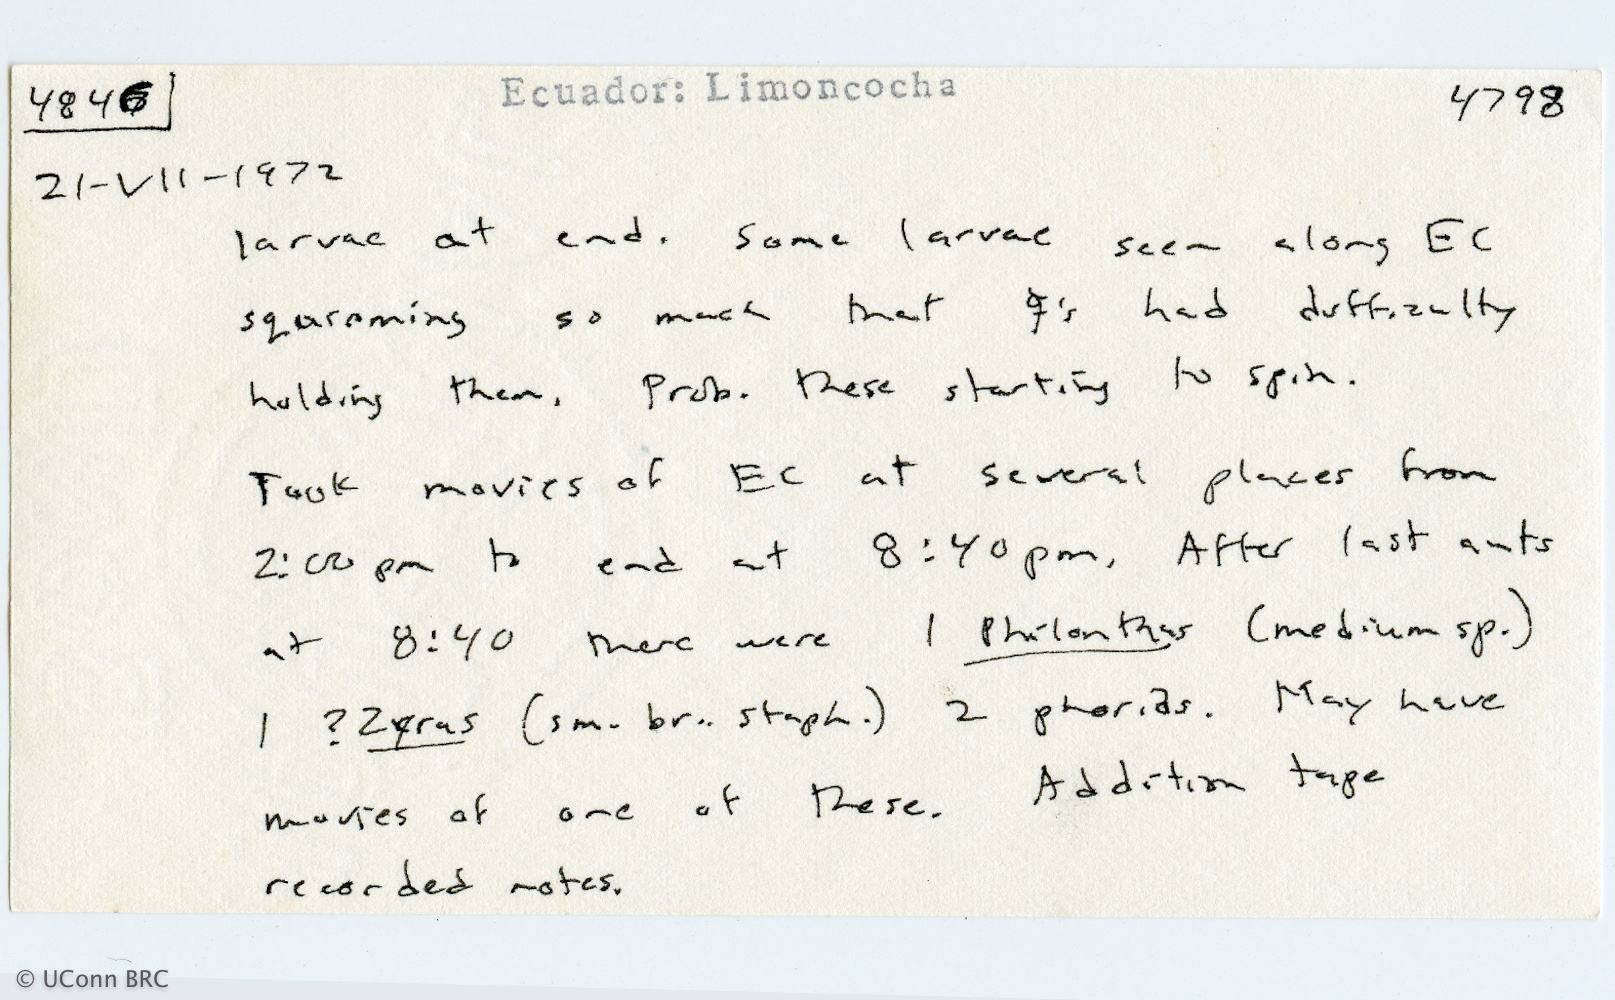 4846 Ecuador: Limoncocha 4798
21-VII-1972
larvae at end. Some larvae seen along EC
squirming so much that ☿'s had difficulty
holding them. Prob. these starting to spin.
Took movies of EC at several places from
2:00 pm to end at 8:40 pm. After last ants
at 8:40 there were 1 Philonthus (medium sp.)
1 ?Zyras (sm. br. staph.) 2 phorids. May have
movies of one of these. Addition tape
recorded notes.
© UConn BRC